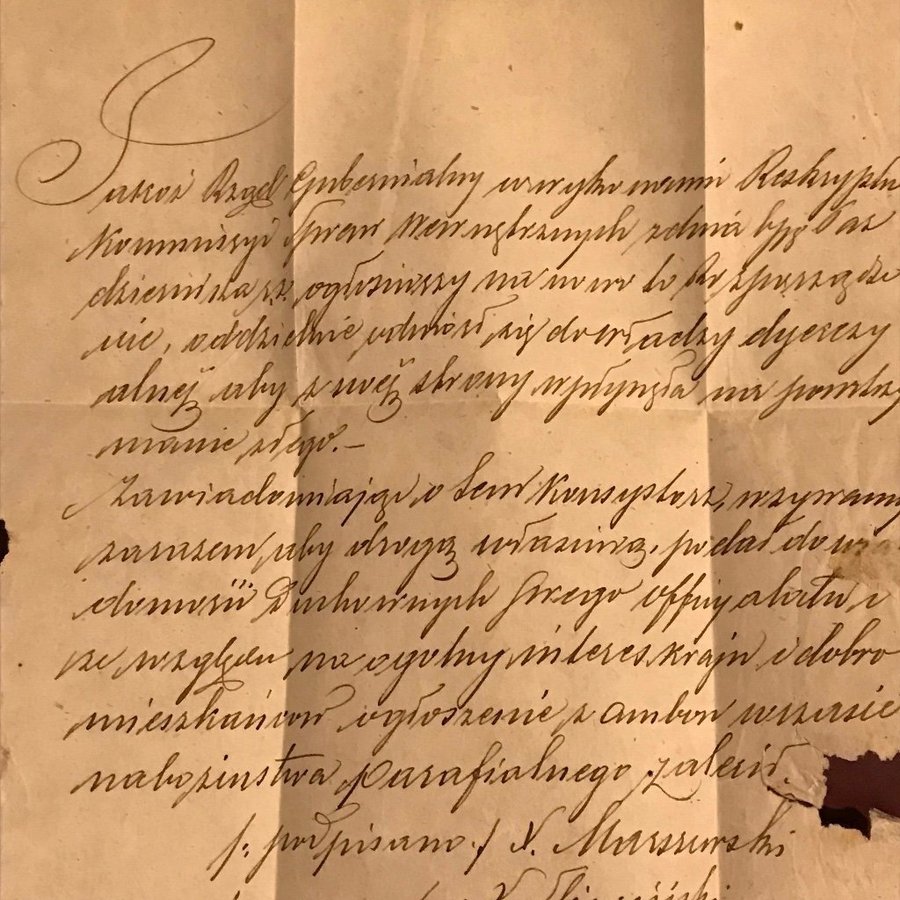 Jakoż Rząd Gubernialny w wykonaniu Reskryptu
Kommissyi Spraw Wewnętrznych z dnia Paź
dziernika ogłosiwszy na nowo to Rozporządze
nie, oddzielnie odniósł się do władzy dyecezy
alnej aby z swéj strony wpłynęła na powstrzy
manie złego.—
Zawiadamiając o tem Konsystorz, wzywamy
zarazem aby drogą właściwą, podał do wia
domości Duchownych swego offycyalatu i
ze względu na ogólny interes kraju i dobro
mieszkańców ogłoszenie z ambon w czasie
nabożeństwa parafialnego zalecił.
/: podpisano :/ X. Marszewski
X.